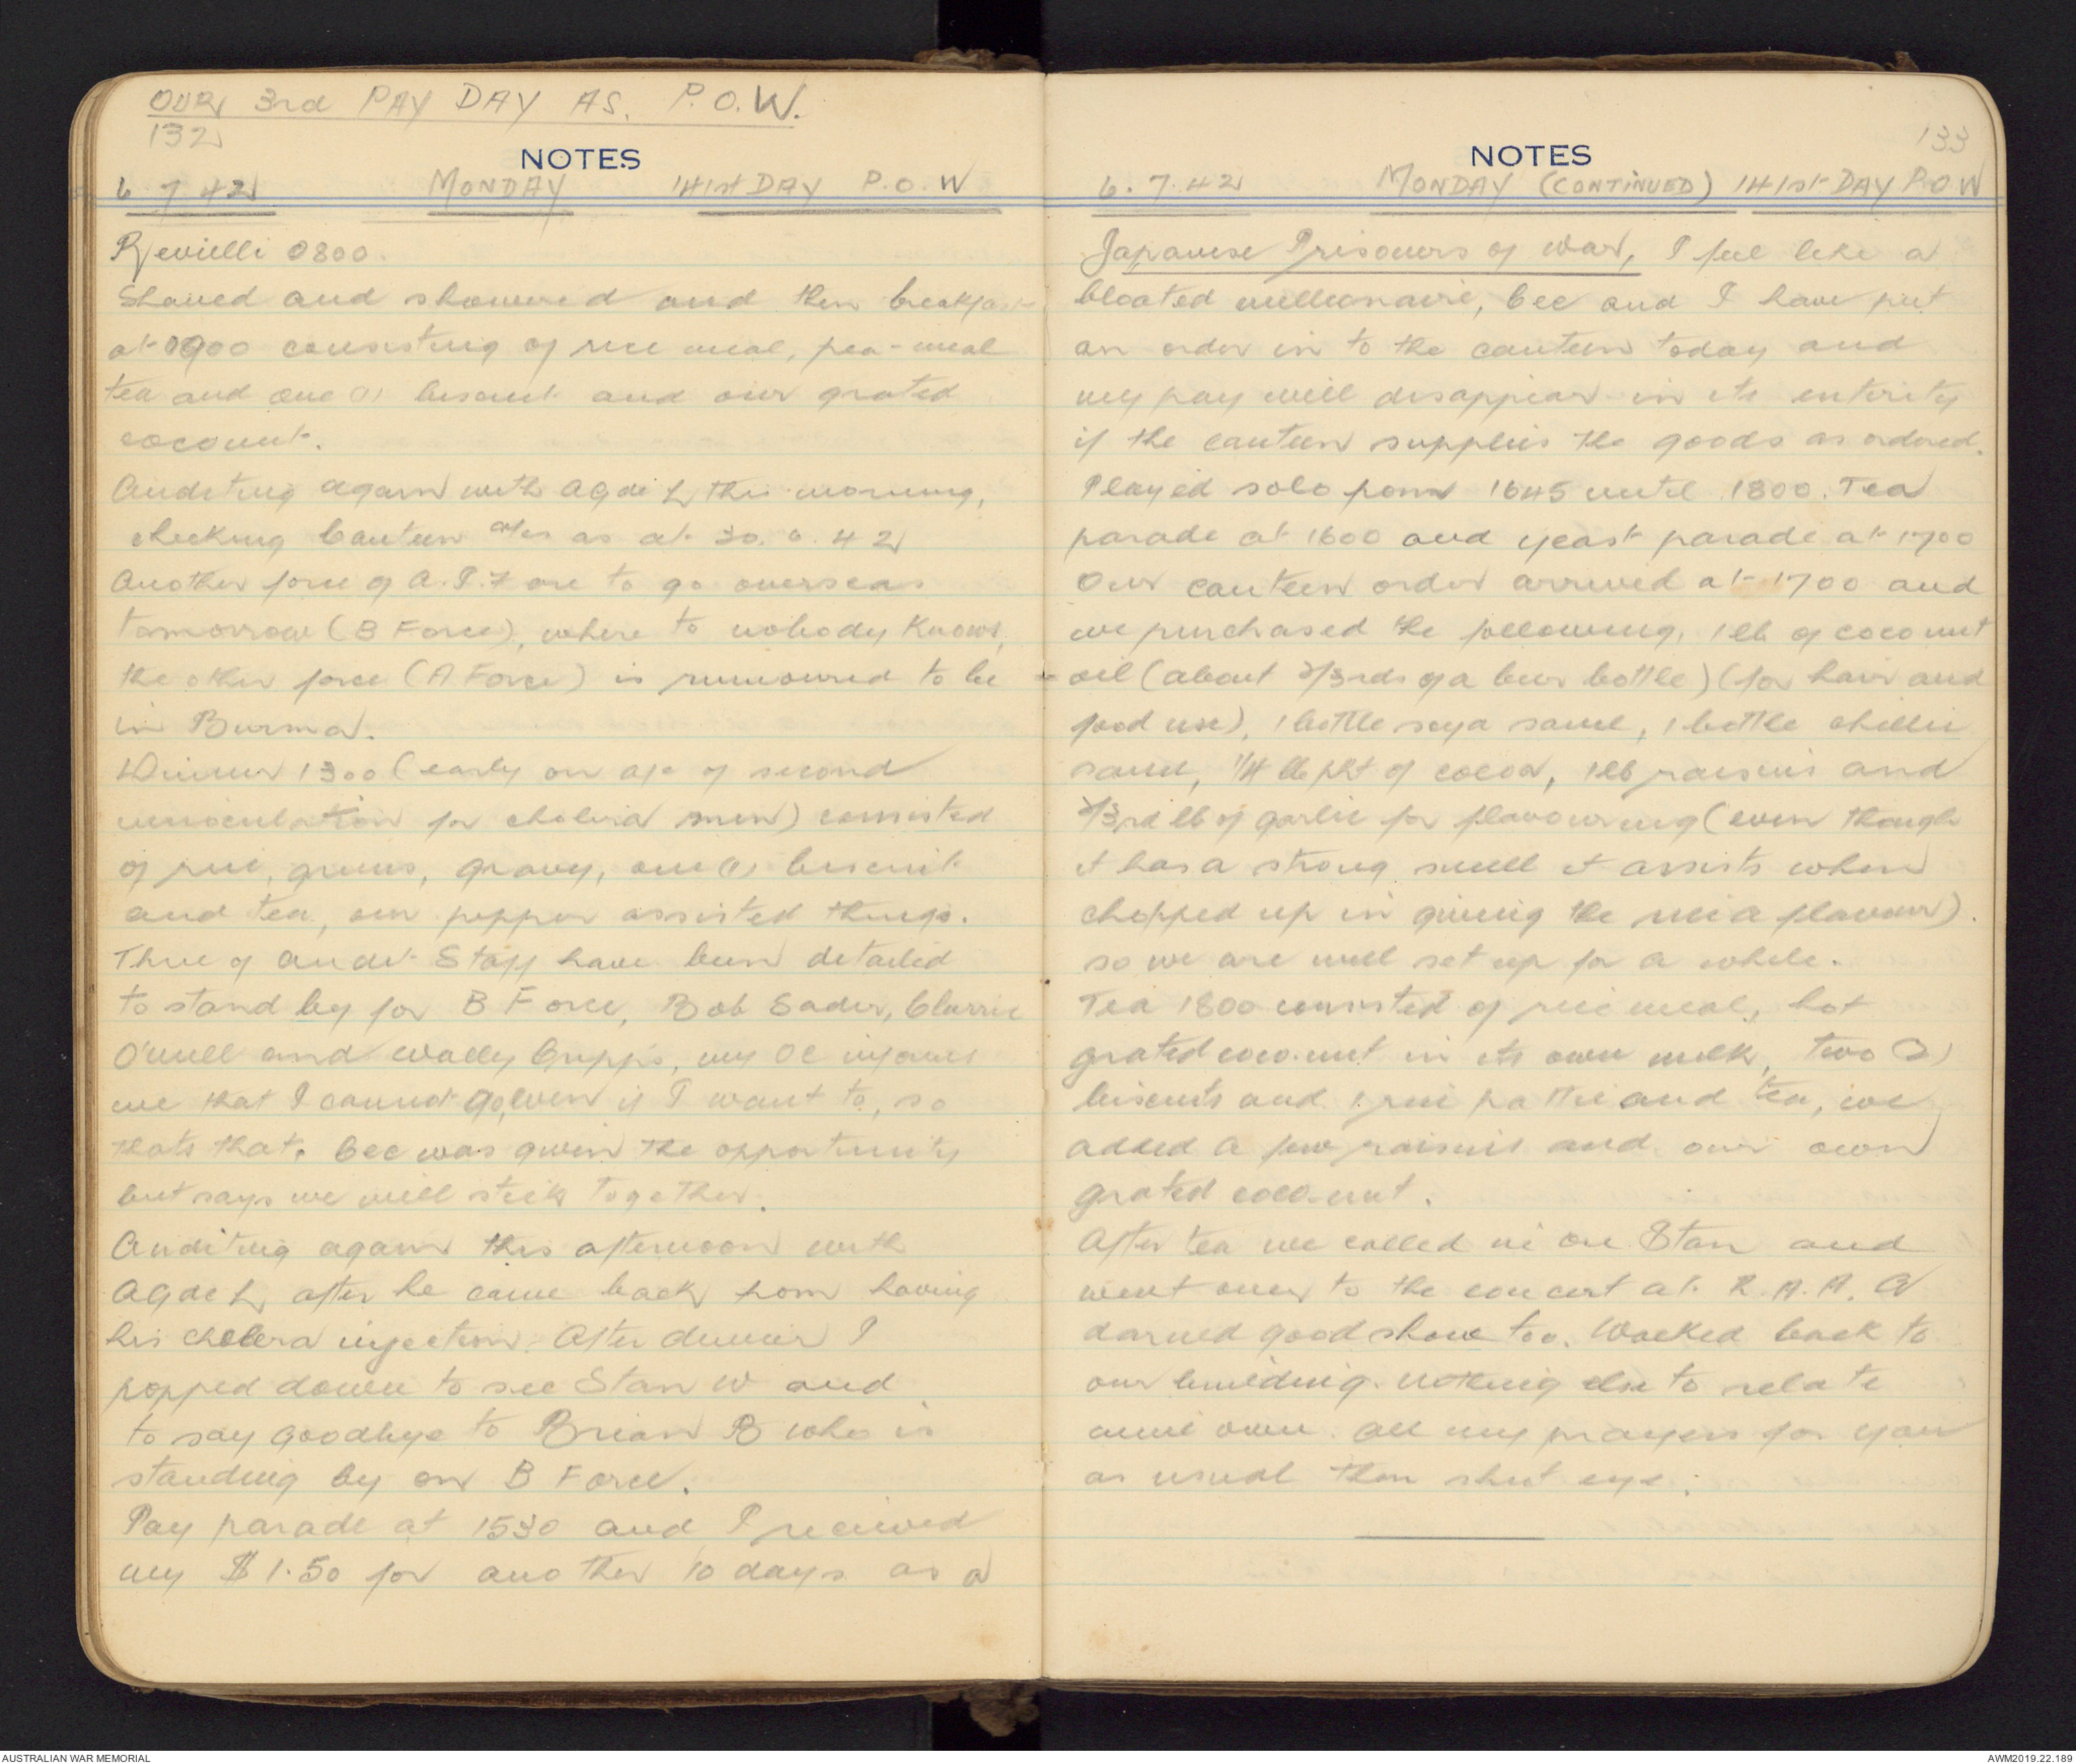 OUR 3rd PAY DAY AS. P.O.W.
132
NOTES
6 7 42 MONDAY 141st DAY P.O.W
Revielli 0800.
Shaved and showered and then breakfast
at 0900 consisting of rice meal, pea-meal
tea and one (1) biscuit and our grated
cocount.
Auditing again with Agde L this morning,
checking Canteen a/cs as at 30. 6. 42
Another force of A.I.F are to go overseas
tomorrow (B Force), where to nobody knows,
the other force (A Force) is rumoured to be
in Burma.
Dinner 1300 (early on a/c of second
innoculation for cholera men) consisted
of rice, greens, gravy, one (1) biscuit
and tea, our pepper assisted things.
Three of audit Staff have been detailed
to stand by for B Force, Bob Sader, Clarrie
O'neill and Wally Cripps, my OC informs
me that I cannot go, even if I want to, so
thats that. Cec was given the opportunity
but says we will stick together.
Auditing again this afternoon with
Agde L, after he came back from having
his cholera injection. After dinner I
popped down to see Stan W and
to say goodbye to Brian B who is
standing by on B Force.
Pay parade at 1530 and I received
my $1.50 for another 10 days as a
133
NOTES
6. 7. 42 MONDAY (CONTINUED) 141st DAY P.O.W
Japanese Prisoners of war, I feel like a
bloated millionaire, Cec and I have put
an order in to the canteen today and
my pay will disappear in its entirity
if the canteen supplies the goods as ordered.
Played solo from 1645 until 1800. Tea
parade at 1600 and yeast parade at 1700
Our canteen order arrived at 1700 and
we purchased the following, 1 lb of coconut
oil (about 2/3rds of a beer bottle) (for hair and
food use), 1 bottle soya sauce, 1 bottle chillie
sauce, 1/4 lb pkt of cocoa, 1 lb raisins and
2/3rd lb of garlic for flavouring (even though
it has a strong smell it assists when
chopped up in giving the rice a flavour).
so we are well set up for a while.
Tea 1800 consisted of rice meal, hot
grated coco.nut in its own milk, two (2)
biscuits and 1 rice pattie and tea, we
added a few raisins and our own
grated coco-nut.
After tea we called in on Stan and
went over to the concert at R. A. A. A
darned good show too. Walked back to
our building. Nothing else to relate
mine own. All my prayers for you
as usual then shut eye.
AUSTRALIAN WAR MEMORIAL
AWM2019.22.189